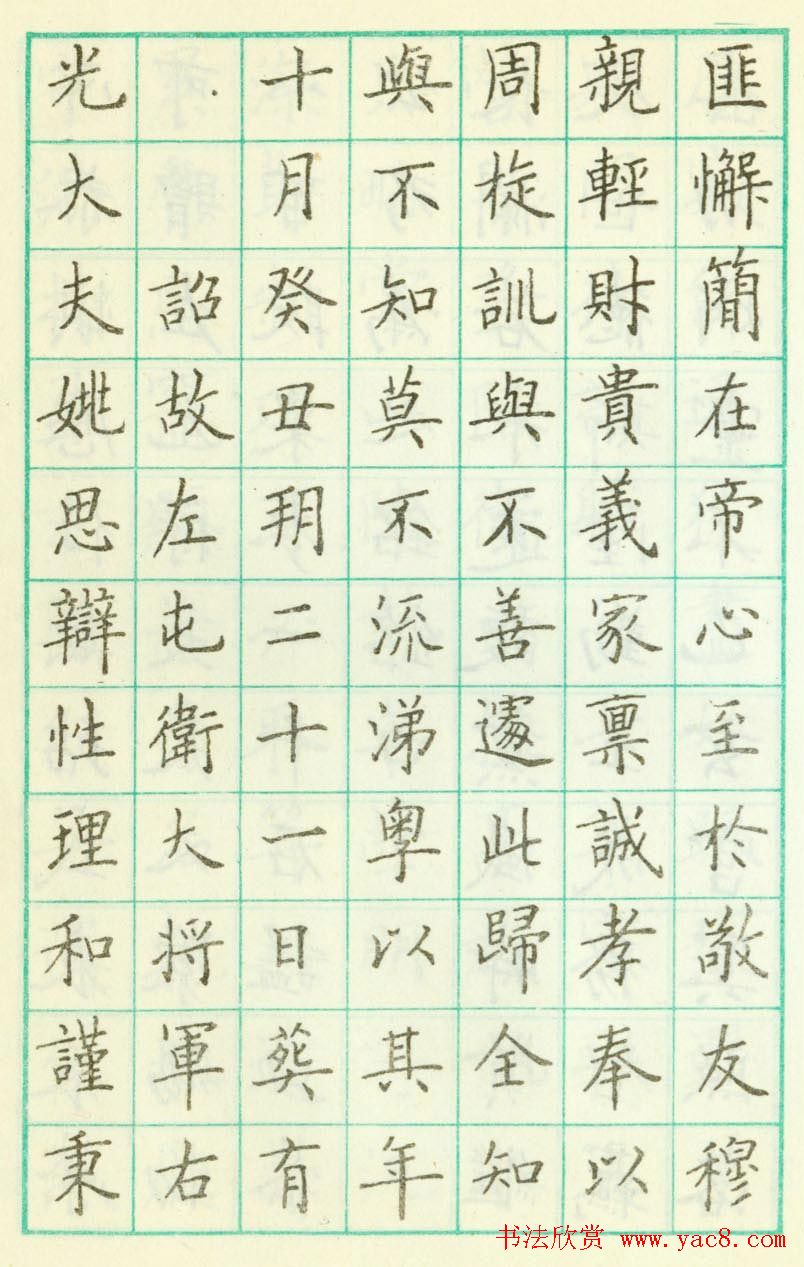 匪懈簡在帝心至於敬友穆
親輕財貴義家禀誠孝奉以
周旋訓與不善遽此歸全知
與不知莫不流涕粤以其年
十月癸丑朔二十一日葬有
詔故左屯衛大將軍右
光大夫姚思辯性理和謹秉
书法欣赏 www.yac8.com